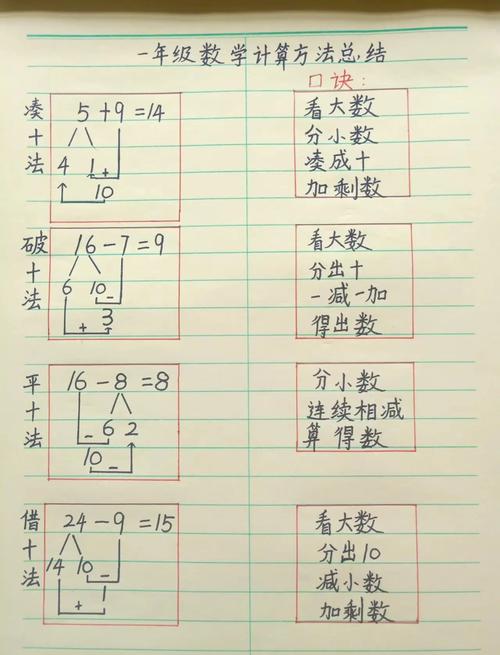 一年级数学计算方法总结
口诀:
凑十法
5+9=14
4 1 +
10
看大数
分小数
凑成十
加剩数
破十法
16-7=9
6 10 -
3
+
看大数
分出十
一减一加
得出数
平十法
16-8=8
- 6 2
10 -
分小数
连续相减
算得数
借十法
24-9=15
14 10 -
1
+
看大数
分出10
减小数
加剩数